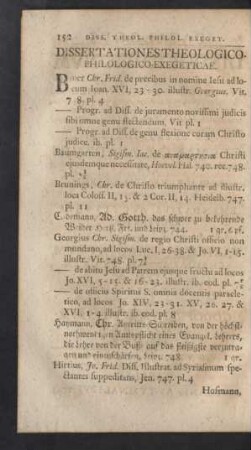 152 DISS. THEOL. PHILOL. EXEGET.
DISSERTATIONES THEOLOGICO-
PHILOLOGICO-EXEGETICAE.
Chr. Frid. de precibus in nomine Iesu ad lo-
cum Joan. XVI, 23-30. illustr. Georgius. Vit.
7 8. pl. 4
— Progr. ad Diss. de juramento novissimi judicis
sibi omne genu flectendum. Vit. pl. 1
— Progr. ad Diss. de genu flexione coram Christo
judice. ib. pl. 1
Baumgarten, Sigism. Iac. de Christi
ejusdemque necessitate, Hal. 740. rec. 748.
pl.
Brunings, Chr. de Christo triumphante ad illustr.
loca Coloss. II, 15. & 2 Cor. II, 14. Heidelb. 747.
pl. 11
Ad. Gotth. das schwer zu bekehrende
Frf. und leipz. 744.
Georgius Chr. Sigism. de regio Christi officio non
mundano, ad locos Luc. I, 26-38. & Jo. VI. 1-15.
illustr. Vit. 748. pl. 7
— de abitu Jesu ad Patrem ejusque fructu ad locos
Jo. XVI, 5-15. & 16-23. illustr. ib. eod. pl.
— de officiis Spiritus S. omnia docentis paracle-
tico, ad locos Jo. XIV, 23-31. XV, 26. 27. &
XVI, 1-4 illustr. ib. eod. pl. 8
Haymann, Chr. von der höchst-
nothwendigen eines Evangel. lehrers,
die lehre von der Buße auf das fleißigste vorzutra-
gen und einzuschärfen, leipz. 748. 1 gr.
Hirtius, Jo. Frid. Diss. Illustrat. ad Syrialinum spe-
ctantes suppeditans, Jen. 747. pl. 4
Hofmann,